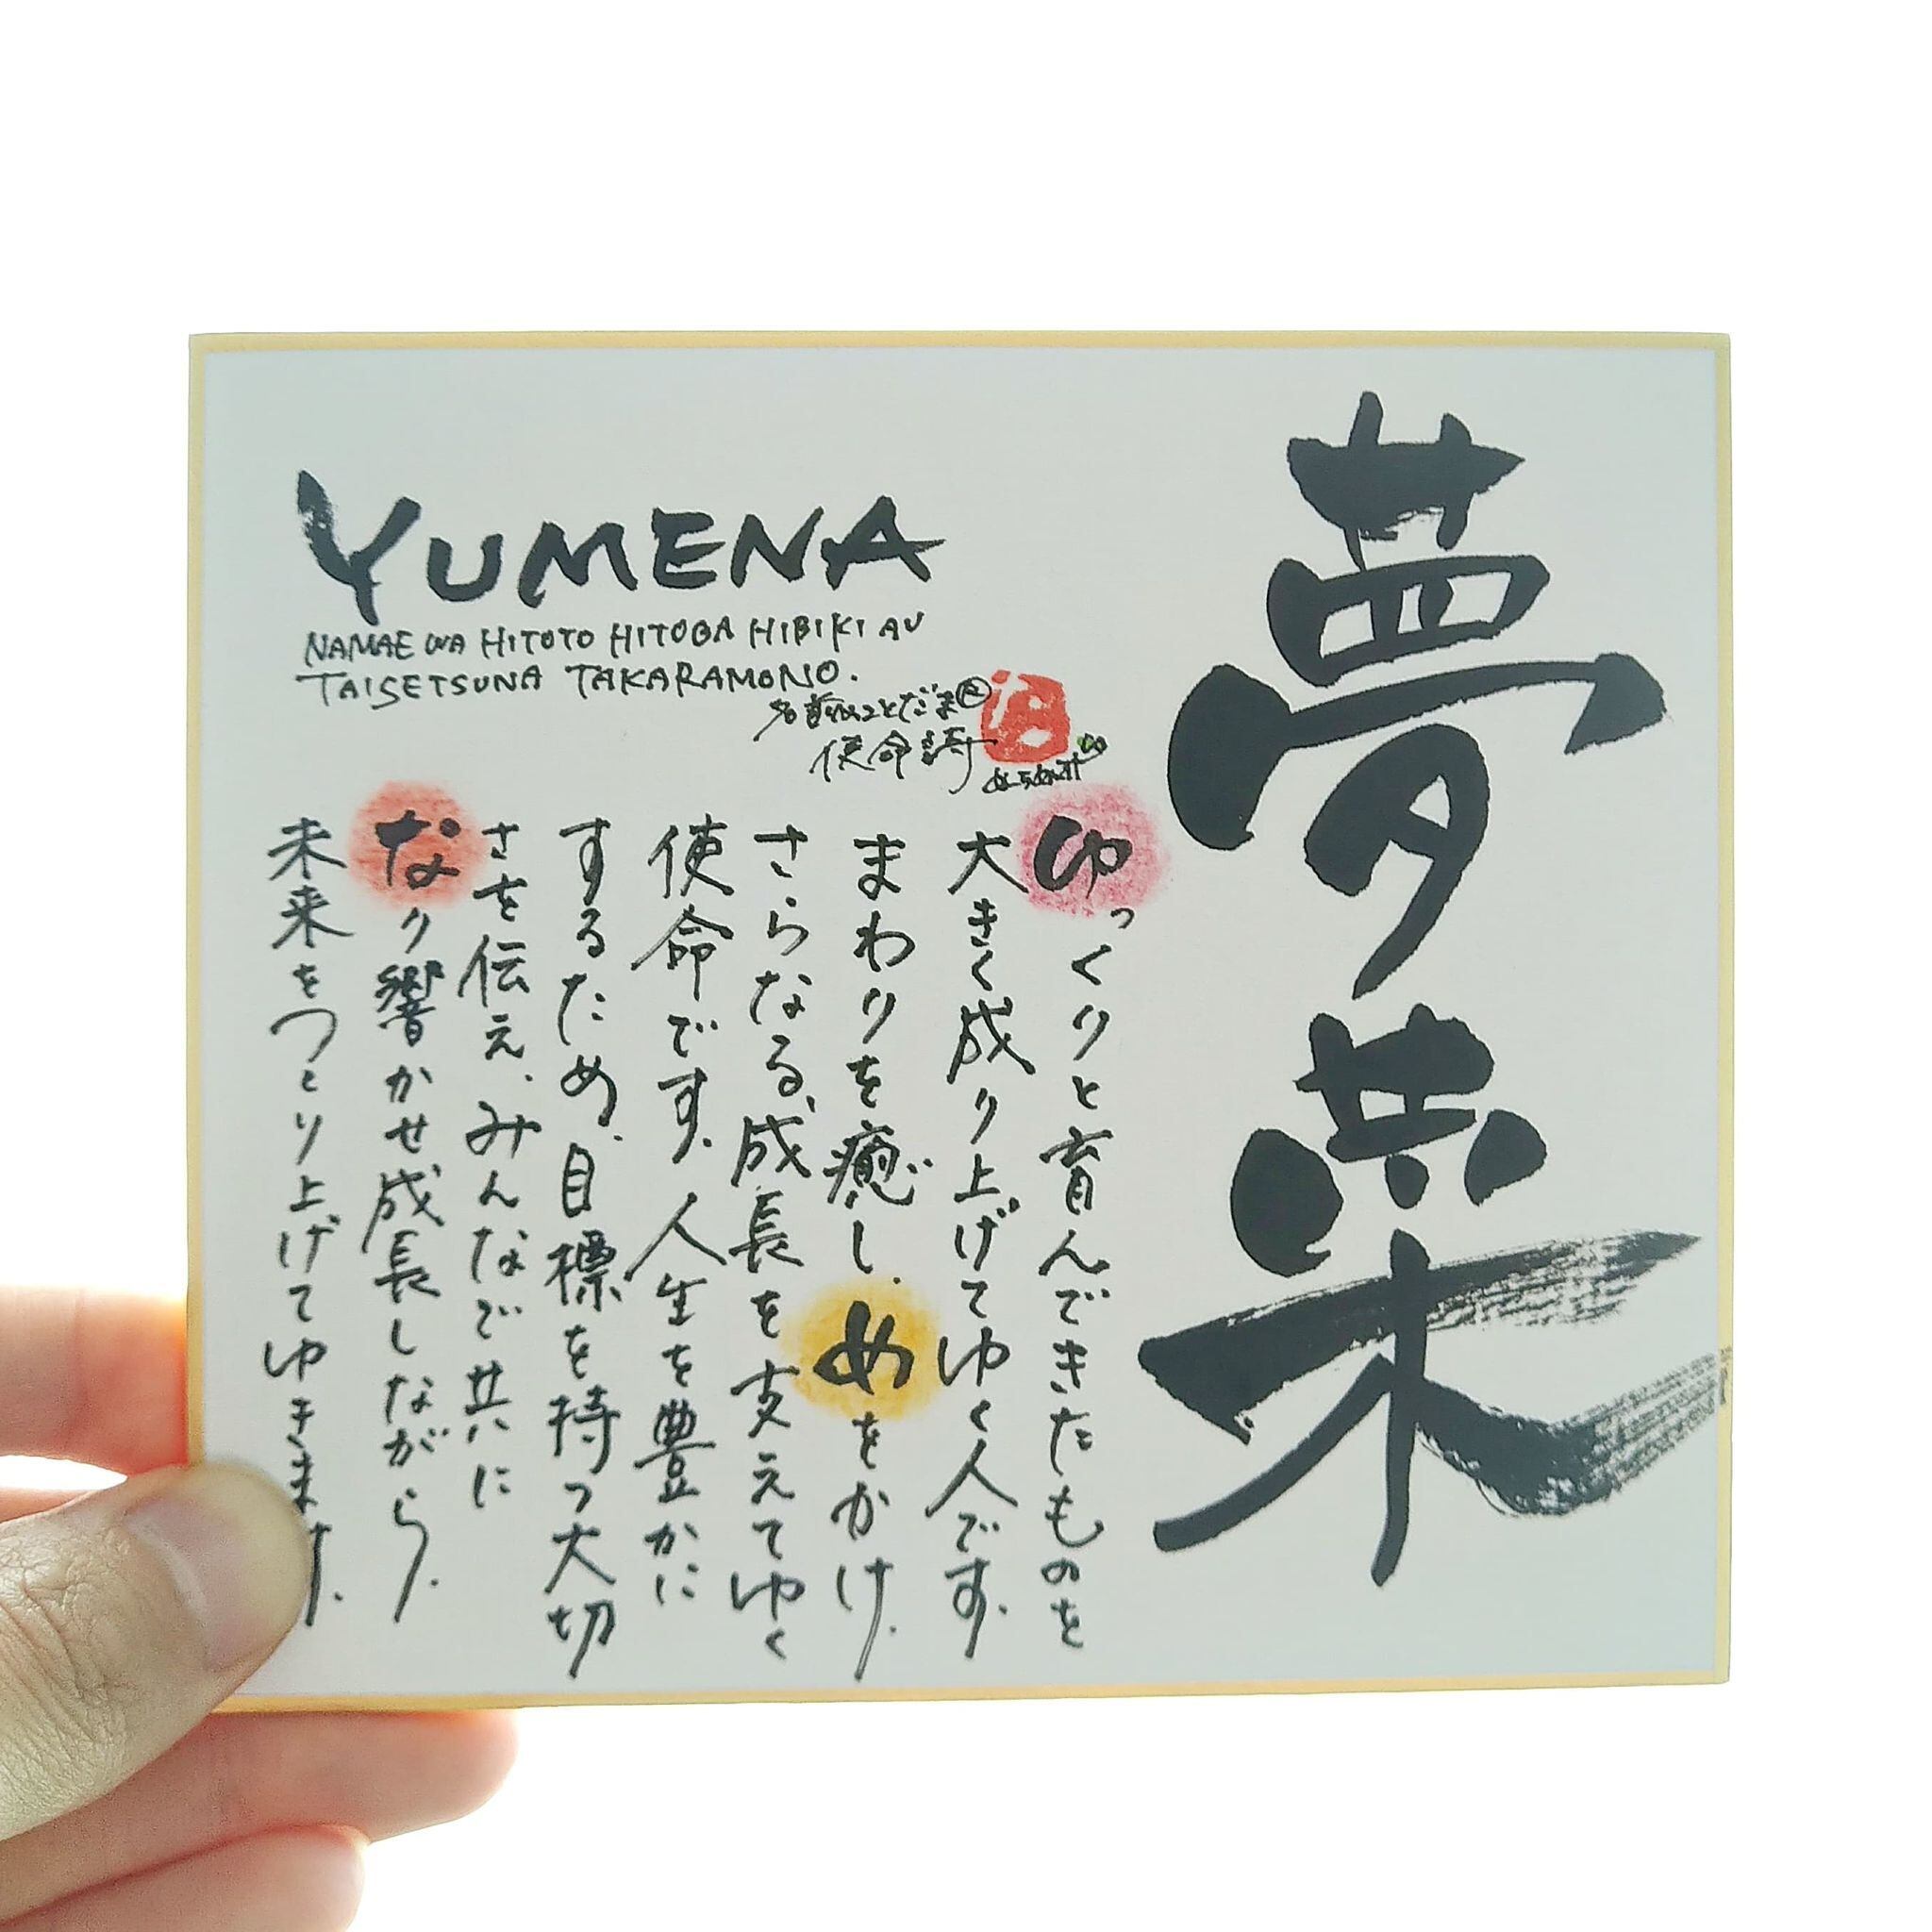 夢菜
YUMENA
NAMAE WA HITOTO HITOGA HIBIKI AU
TAISETSUNA TAKARAMONO.
名前のことだま®
使命詩
ゆっくりと育んできたものを
大きく成り上げてゆく人です。
まわりを癒し、めをかけ、
さらなる成長を支えてゆく
使命です。人生を豊かに
するため、目標を持つ大切
さを伝え、みんなで共に
なり響かせ成長しながら、
未来をつくり上げてゆきます。